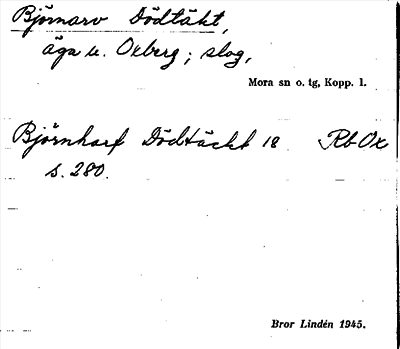 Björnarv Dödtäkt,
äga u. Oxberg; slog,
Mora sn o. tg, Kopp. l.
Björnharf Dödtäckt 18 Rb Ox
s. 280.
Bror Lindén 1945.